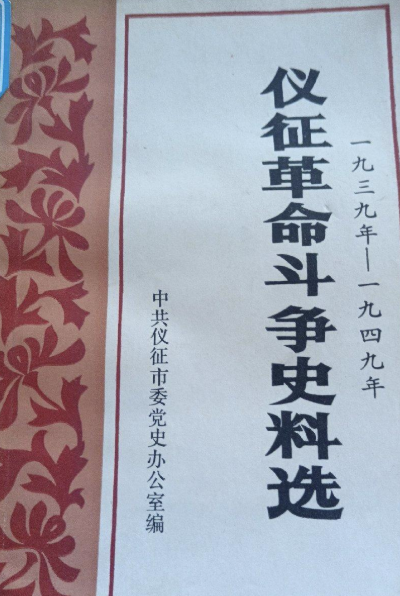 一九三九年—一九四九年
仪征革命斗争史料选
中共仪征市委党史办公室编